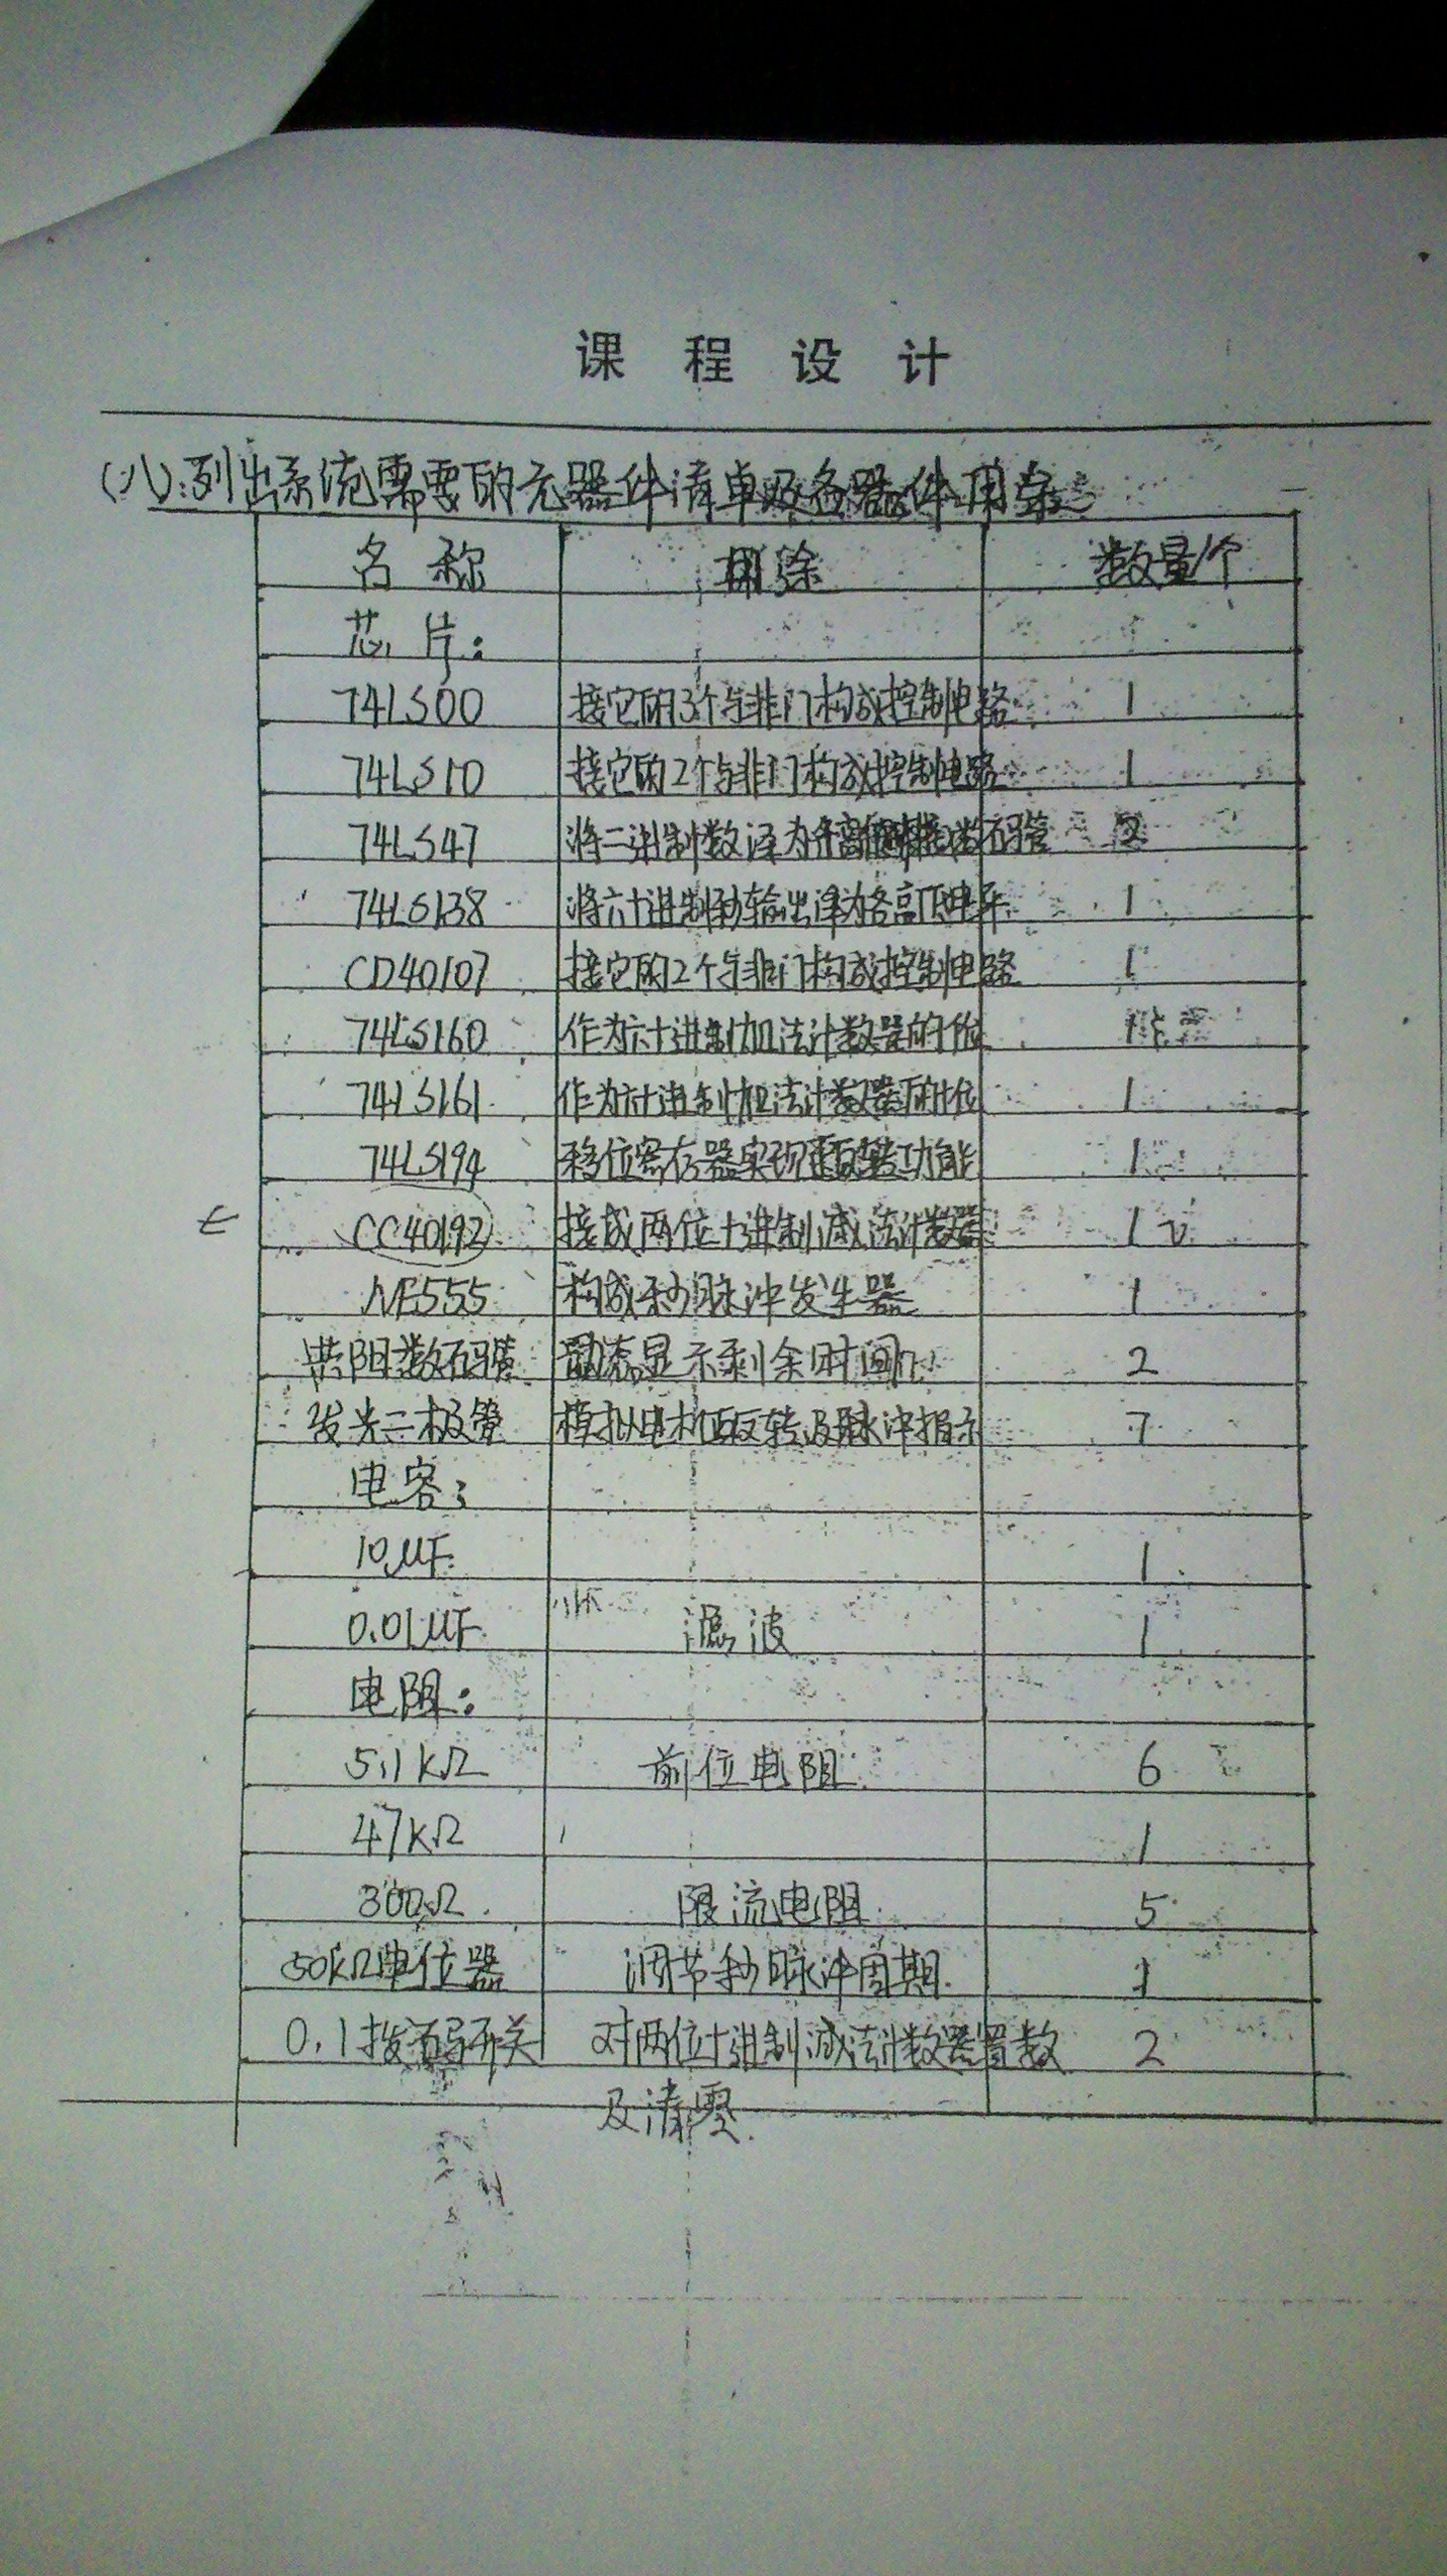 课 程 设 计
(八).列出系统需要的元器件清单及各器件用途
名 称 用途 数量/个
芯 片:
74LS00 接它的3个与非门构成控制电路 1
74LS10 接它的2个与非门构成控制电路 1
74LS47 将二进制数译为 数码管 2
74LS138 将六十进制的输出译为各高低电平 1
CD40107 接它的2个与非门构成控制电路 1
74LS160 作为六十进制加法计数器的个位 1
74LS161 作为六十进制加法计数器的十位 1
74LS194 移位寄存器实现正反转功能 1
CC40192 接成两位十进制减法计数器 1 2
NE555 构成秒脉冲发生器 1
共阳数码管 动态显示剩余时间 2
发光二极管 模拟电机正反转及脉冲指示 7
电容:
10μF 1
0.01μF 滤波 1
电阻:
5.1kΩ 前位电阻 6
47kΩ 1
300Ω 限流电阻 5
50kΩ电位器 调节秒脉冲周期 1
0.1拨码开关 对两位十进制减法计数器置数 2
及清零